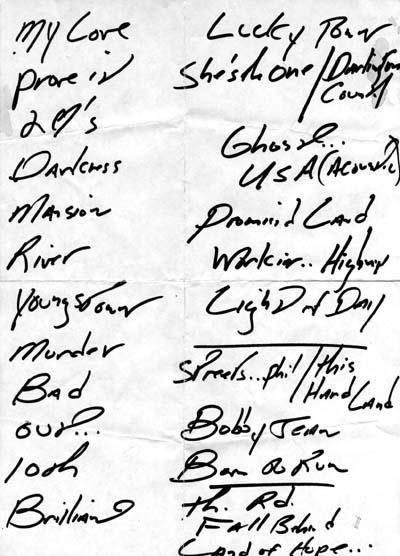 My Love
Prove it
2 ♡'s
Darkness
Mansion
River
Youngstown
Murder
Bad
Out...
10th
Brilliant
Lucky Town
She's th One / Darlington County
Ghost...
USA (Acoustic)
Promised Land
Workin.. Highway
Light Of Day
Streets..phil / this Hard Land
Bobby Jean
Born to Run
Th. Rd.
Fall Behind
Land of Hope...